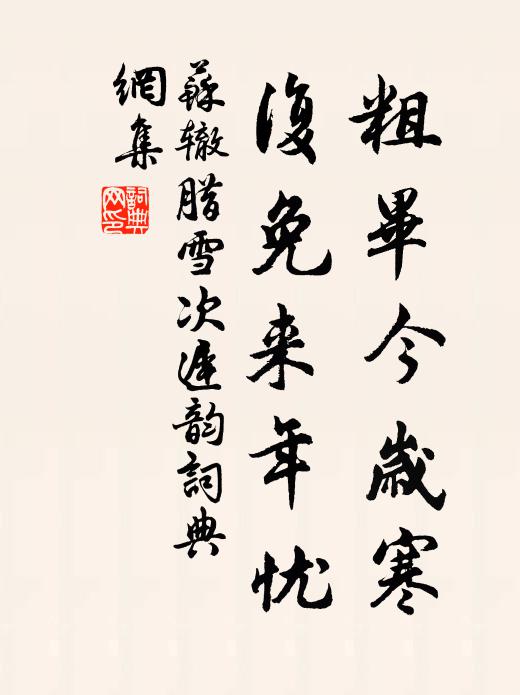 粗畢今歲寒
復免来年忧
蘇辙腊雪次遲韵詞典
網集
詞典網印